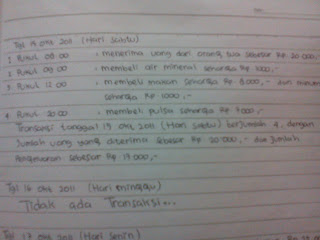 Tgl 15 Okt 2011 (Hari sabtu)
1 Pukul 08.00 . menerima uang dari orang tua sebesar Rp. 20.000,-
2 Pukul 09.00 . membeli air mineral seharga Rp. 1000,-
3 Pukul 12.00 . membeli makan seharga Rp. 8.000,- dan
seharga Rp. 1000,-
4 Pukul 20.00 . membeli pulsa seharga Rp.
Transaksi tanggal 15 Okt 2011 (Hari sabtu) berjumlah 4, dengan
Jumlah uang yang diterima sebesar Rp 20.000,- dan jumlah
Pengeluaran sebesar Rp
Tgl 16 Okt 2011 (Hari minggu)
Tidak ada Transaksi...
Tgl 17 Okt 2011 (Hari senin)